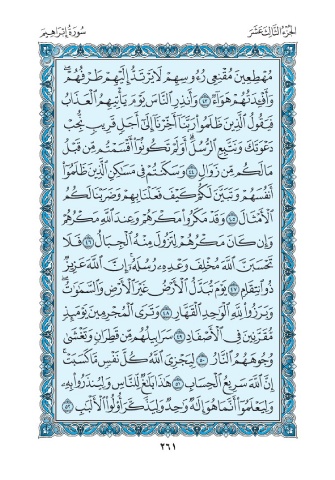 الجزء الثالث عشر
سورة إبراهيم
مُهْطِعِينَ مُقْنِعِي رُءُوسِهِمْ لَا يَرْتَدُّ إِلَيْهِمْ طَرْفُهُمْ
وَأَفْـِٔدَتُهُمْ هَوَآءٌ ٤٣ وَأَنذِرِ ٱلنَّاسَ يَوْمَ يَأْتِيهِمُ ٱلْعَذَابُ
فَيَقُولُ ٱلَّذِينَ ظَلَمُوا۟ رَبَّنَآ أَخِّرْنَآ إِلَىٰٓ أَجَلٍ قَرِيبٍ نُّجِبْ
دَعْوَتَكَ وَنَتَّبِعِ ٱلرُّسُلَ أَوَلَمْ تَكُونُوٓا۟ أَقْسَمْتُم مِّن قَبْلُ
مَا لَكُم مِّن زَوَالٍ ٤٤ وَسَكَنتُمْ فِى مَسَٰكِنِ ٱلَّذِينَ ظَلَمُوٓا۟
أَنفُسَهُمْ وَتَبَيَّنَ لَكُمْ كَيْفَ فَعَلْنَا بِهِمْ وَضَرَبْنَا لَكُمُ
ٱلْأَمْثَالَ ٤٥ وَقَدْ مَكَرُوا۟ مَكْرَهُمْ وَعِندَ ٱللَّهِ مَكْرُهُمْ
وَإِن كَانَ مَكْرُهُمْ لِتَزُولَ مِنْهُ ٱلْجِبَالُ ٤٦ فَلَا
تَحْسَبَنَّ ٱللَّهَ مُخْلِفَ وَعْدِهِۦ رُسُلَهُۥٓ إِنَّ ٱللَّهَ عَزِيزٌ
ذُو ٱنتِقَامٍ ٤٧ يَوْمَ تُبَدَّلُ ٱلْأَرْضُ غَيْرَ ٱلْأَرْضِ وَٱلسَّمَٰوَٰتُ
وَبَرَزُوا۟ لِلَّهِ ٱلْوَٰحِدِ ٱلْقَهَّارِ ٤٨ وَتَرَى ٱلْمُجْرِمِينَ يَوْمَئِذٍ
مُّقَرَّنِينَ فِى ٱلْأَصْفَادِ ٤٩ سَرَابِيلُهُم مِّن قَطِرَانٍ وَتَغْشَىٰ
وُجُوهَهُمُ ٱلنَّارُ ٥٠ لِيَجْزِىَ ٱللَّهُ كُلَّ نَفْسٍ مَّا كَسَبَتْ
إِنَّ ٱللَّهَ سَرِيعُ ٱلْحِسَابِ ٥١ هَٰذَا بَلَٰغٌ لِّلنَّاسِ وَلِيُنذَرُوا۟ بِهِۦ
وَلِيَعْلَمُوٓا۟ أَنَّمَا هُوَ إِلَٰهٌ وَٰحِدٌ وَلِيَذَّكَّرَ أُو۟لُوا۟ ٱلْأَلْبَٰبِ ٥٢
٢٦١